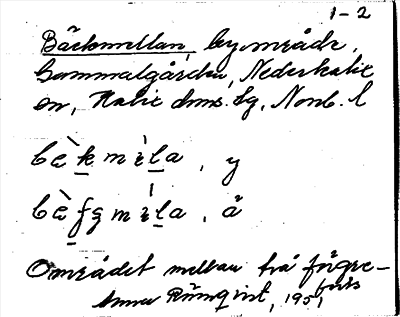 1-2
Bäckmellan, byområde,
Gammalgården, Nederkalix
sn, Kalix dms. tg, Norrb. l
bèkmèla, y
bèfgmèla, å
Området mellan två
Anna Rönnqvist, 1951